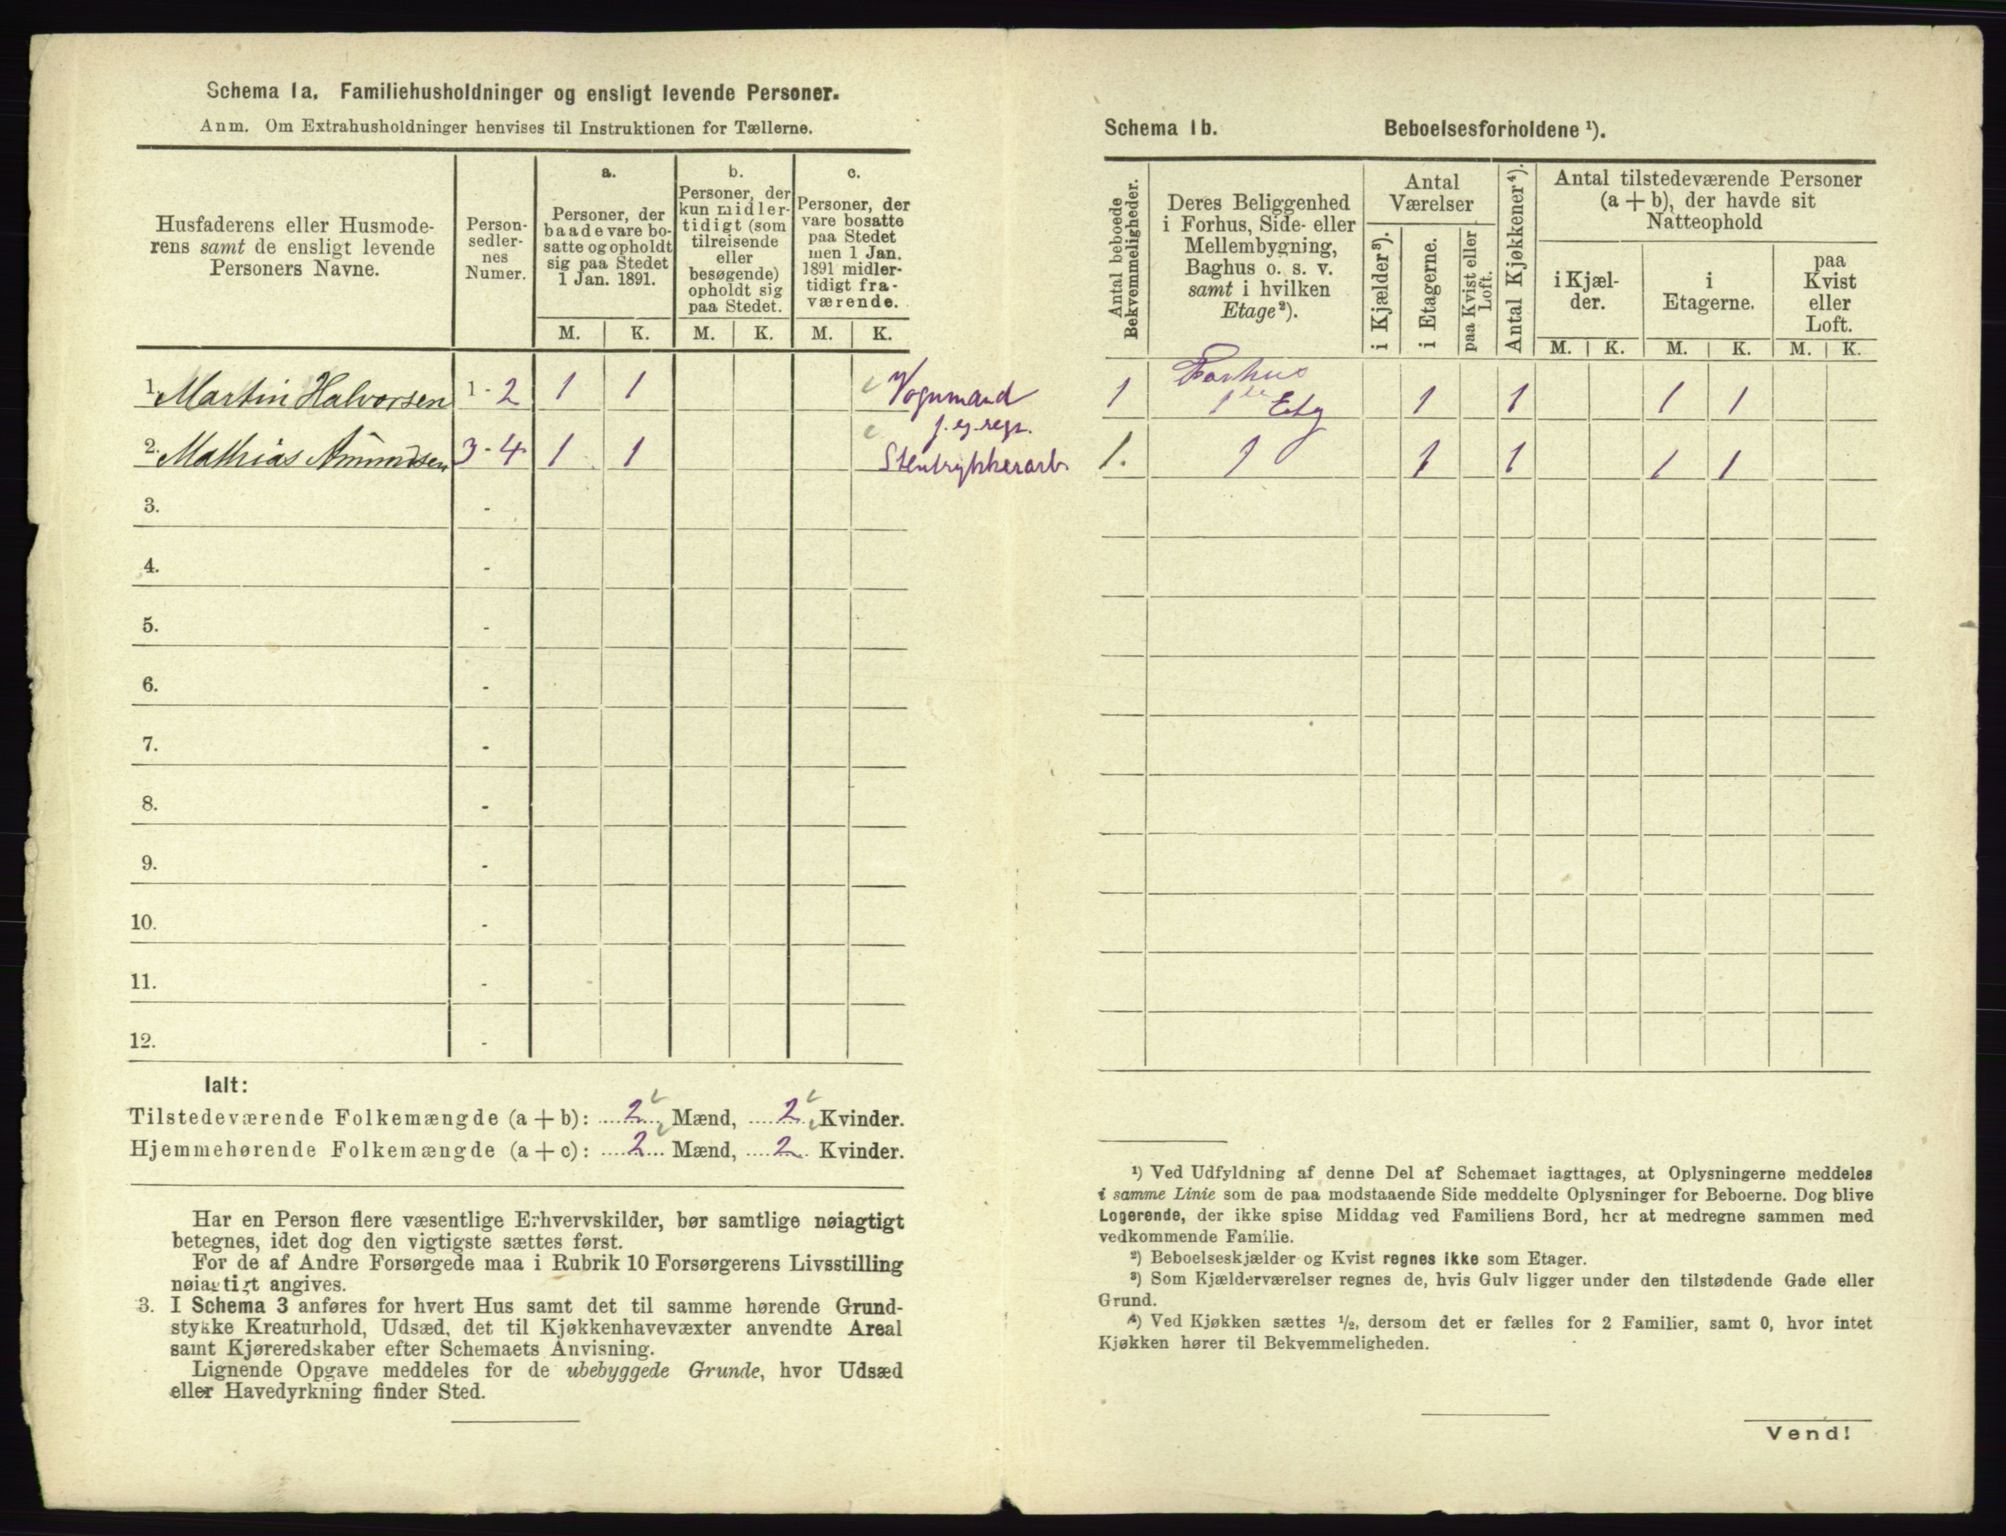 Schema 1a. Familiehusholdninger og ensligt levende Personer.
Anm. Om Extrahusholdninger henvises til Instruktionen for Tællerne.
Husfaderens eller Husmode-
rens samt de ensligt levende
Personers Navne.
Person-
sedler-
nes
Numer.
a.
Personer, der
baade vare bo-
satte og opholdt
sig paa Stedet
1 Jan. 1891.
b.
Personer, der
kun midler-
tidigt (som
tilreisende
eller
besøgende)
opholdt sig
paa Stedet.
c.
Personer, der
vare bosatte
paa Stedet
men 1 Jan.
1891 midler-
tidigt fra-
værende.
M. K. M. K. M. K.
1. Martin Halvorsen 1 - 2 1 1 Vognmand
f. eg. regn.
2. Mathias Amundsen 3 - 4 1 1 Stentrykkerarb.
3. -
4. -
5. -
6. -
7. -
8. -
9. -
10. -
11. -
12. -
Ialt:
Tilstedeværende Folkemængde (a + b): 2 Mænd, 2 Kvinder.
Hjemmehørende Folkemængde (a + c): 2 Mænd, 2 Kvinder.
Har en Person flere væsentlige Erhvervskilder, bør samtlige nøiagtigt
betegnes, idet dog den vigtigste sættes først.
For de af Andre Forsørgede maa i Rubrik 10 Forsørgerens Livsstilling
nøiagtigt angives.
3. I Schema 3 anføres for hvert Hus samt det til samme hørende Grund-
stykke Kreaturhold, Udsæd, det til Kjøkkenhavevæxter anvendte Areal
samt Kjøreredskaber efter Schemaets Anvisning.
Lignende Opgave meddeles for de ubebyggede Grunde, hvor Udsæd
eller Havedyrkning finder Sted.
Schema 1b. Beboelsesforholdene ¹).
Antal beboede
Bekvemmeligheder.
Deres Beliggenhed
i Forhus, Side- eller
Mellembygning,
Baghus o. s. v.
samt i hvilken
Etage ²).
Antal
Værelser
i Kjælder ³).
i Etagerne.
paa Kvist eller
Loft.
Antal Kjøkkener ⁴).
Antal tilstedeværende Personer
(a + b), der havde sit
Natteophold
i Kjæl-
der.
i
Etagerne.
paa
Kvist
eller
Loft.
M. K. M. K. M. K.
1 Forhus
1ste Etg 1 1 1 1
1. 1 1 1 1 1
¹) Ved Udfyldning af denne Del af Schemaet iagttages, at Oplysningerne meddeles
i samme Linie som de paa modstaaende Side meddelte Oplysninger for Beboerne. Dog blive
Logerende, der ikke spise Middag ved Familiens Bord, her at medregne sammen med
vedkommende Familie.
²) Beboelseskjælder og Kvist regnes ikke som Etager.
³) Som Kjælderværelser regnes de, hvis Gulv ligger under den tilstødende Gade eller
Grund.
⁴) Ved Kjøkken sættes ½, dersom det er fælles for 2 Familier, samt 0, hvor intet
Kjøkken hører til Bekvemmeligheden.
Vend!